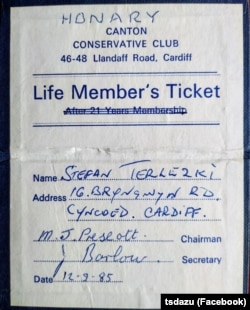 HONARY
CANTON
CONSERVATIVE CLUB
46-48 Llandaff Road, Cardiff
Life Member's Ticket
After 21 Years Membership
Name STEFAN TERLEZKI
Address 16. BRYNGWYN RD
CYNCOED. CARDIFF.
M.J. Prescott. Chairman
Barlow. Secretary
Date 12-9-85
tsdazu (Facebook)